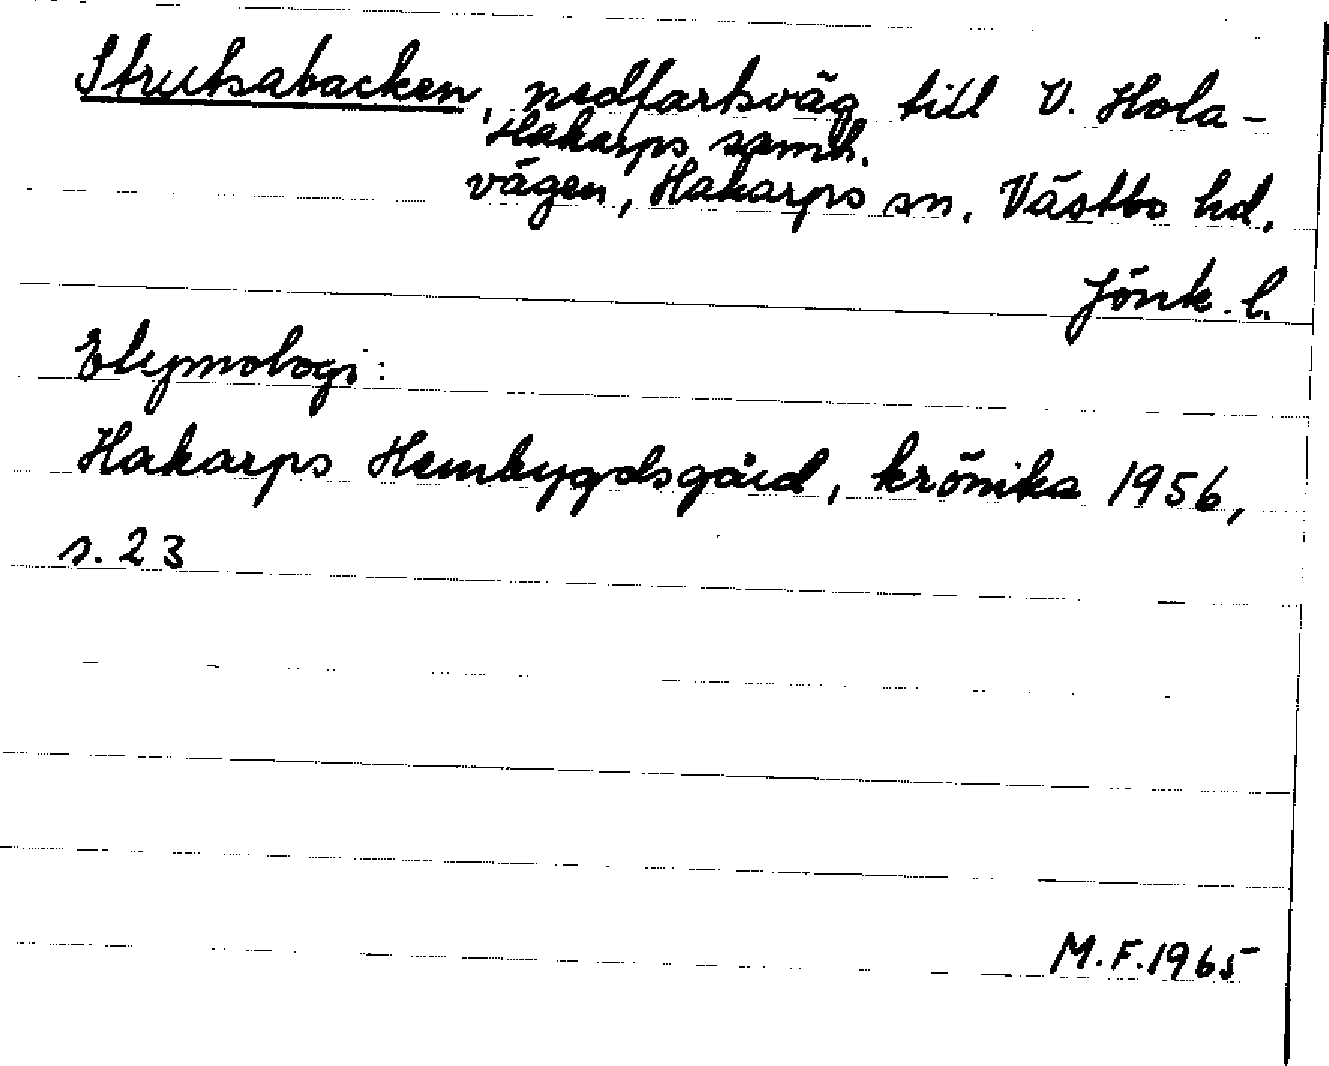 Strutsabacken, nedfartsväg till V. Hola-
Hakarps samh.
vägen, Hakarps sn. Västbo hd.
Jönk. l.
Etymologi:
Hakarps Hembygdsgård, krönika 1956,
s. 23
M.F. 1965